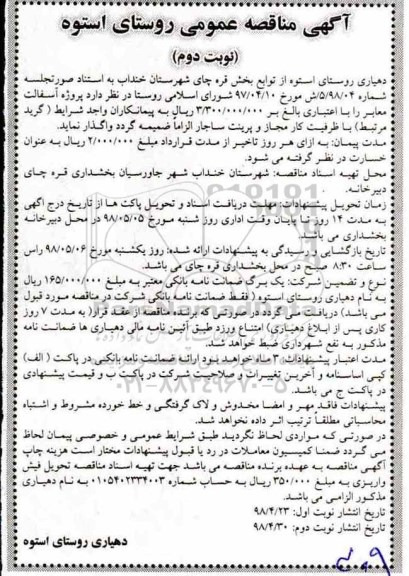 آگهی مناقصه عمومی روستای استوه
(نوبت دوم)
دهیاری روستای استوه از توابع بخش قره چای شهرستان خنداب به استناد صورتجلسه
شماره ۵/۹۸/۰۴/ش مورخ ۹۷/۰۴/۱۰ شورای اسلامی روستا در نظر دارد پروژه آسفالت
معابر را با اعتباری بالغ بر ۳/۳۰۰/۰۰۰/۰۰۰ ریال به پیمانکاران واجد شرایط ( گرید
مرتبط) با ظرفیت کار مجاز و پرینت ساجار الزاماً ضمیمه گردد واگذار نماید.
مدت پیمان: به ازای هر روز تاخیر از مدت قرارداد مبلغ ۲/۰۰۰/۰۰۰ ریال به عنوان
خسارت در نظر گرفته می شود.
محل تهیه اسناد مناقصه: شهرستان خنداب شهر جاورسیان بخشداری قره چای
دبیرخانه.
زمان تحویل پیشنهادات: مهلت دریافت اسناد و تحویل پاکت ها از تاریخ درج آگهی
به مدت ۱۴ روز تا پایان وقت اداری روز شنبه مورخ ۹۸/۰۵/۰۵ در محل دبیرخانه
بخشداری می باشد.
تاریخ بازگشایی و رسیدگی به پیشنهادات ارائه شده: روز یکشنبه مورخ ۹۸/۰۵/۰۶ راس
ساعت ۸:۳۰ صبح در محل بخشداری قره چای می باشد.
نوع و تضمین شرکت: یک برگ ضمانت نامه بانکی معتبر به مبلغ ۱۶۵/۰۰۰/۰۰۰ ریال
به نام دهیاری روستای استوه ( فقط ضمانت نامه بانکی شرکت در مناقصه مورد قبول
می باشد) دریافت می گردد در صورتی که برنده مناقصه از عقد قرار( به مدت ۷ روز
کاری پس از ابلاغ دهیاری) امتناع ورزد طبق آئین نامه مالی دهیاری ها ضمانت نامه
مذکور به نفع شهرداری ضبط خواهد شد.
مدت اعتبار پیشنهادات ۳ ماه خواهد بود ارائه ضمانت نامه بانکی در پاکت ( الف)
کپی اساسنامه و آخرین تغییرات و صلاحیت شرکت در پاکت ب و قیمت پیشنهادی
در پاکت ج می باشد.
پیشنهادات فاقد مهر و امضا مخدوش و لاک گرفتگی و خط خورده مشروط و اشتباه
محاسباتی مطلقاً ترتیب اثر داده نخواهد شد.
در صورتی که مواردی لحاظ نگردید طبق شرایط عمومی و خصوصی پیمان لحاظ
می گردد ضمنا کمیسیون معاملات در رد یا قبول پیشنهادات مختار است هزینه چاپ
آگهی مناقصه به عهده برنده مناقصه می باشد جهت تهیه اسناد مناقصه تحویل فیش
واریزی به مبلغ ۳۵۰/۰۰۰ ریال به حساب شماره ۰۱۰۵۴۰۲۳۳۴۰۰۳ به نام دهیاری
مذکور الزامی می باشد.
تاریخ انتشار نوبت اول: ۹۸/۴/۲۳
تاریخ انتشار نوبت دوم: ۹۸/۴/۳۰
دهیاری روستای استوه